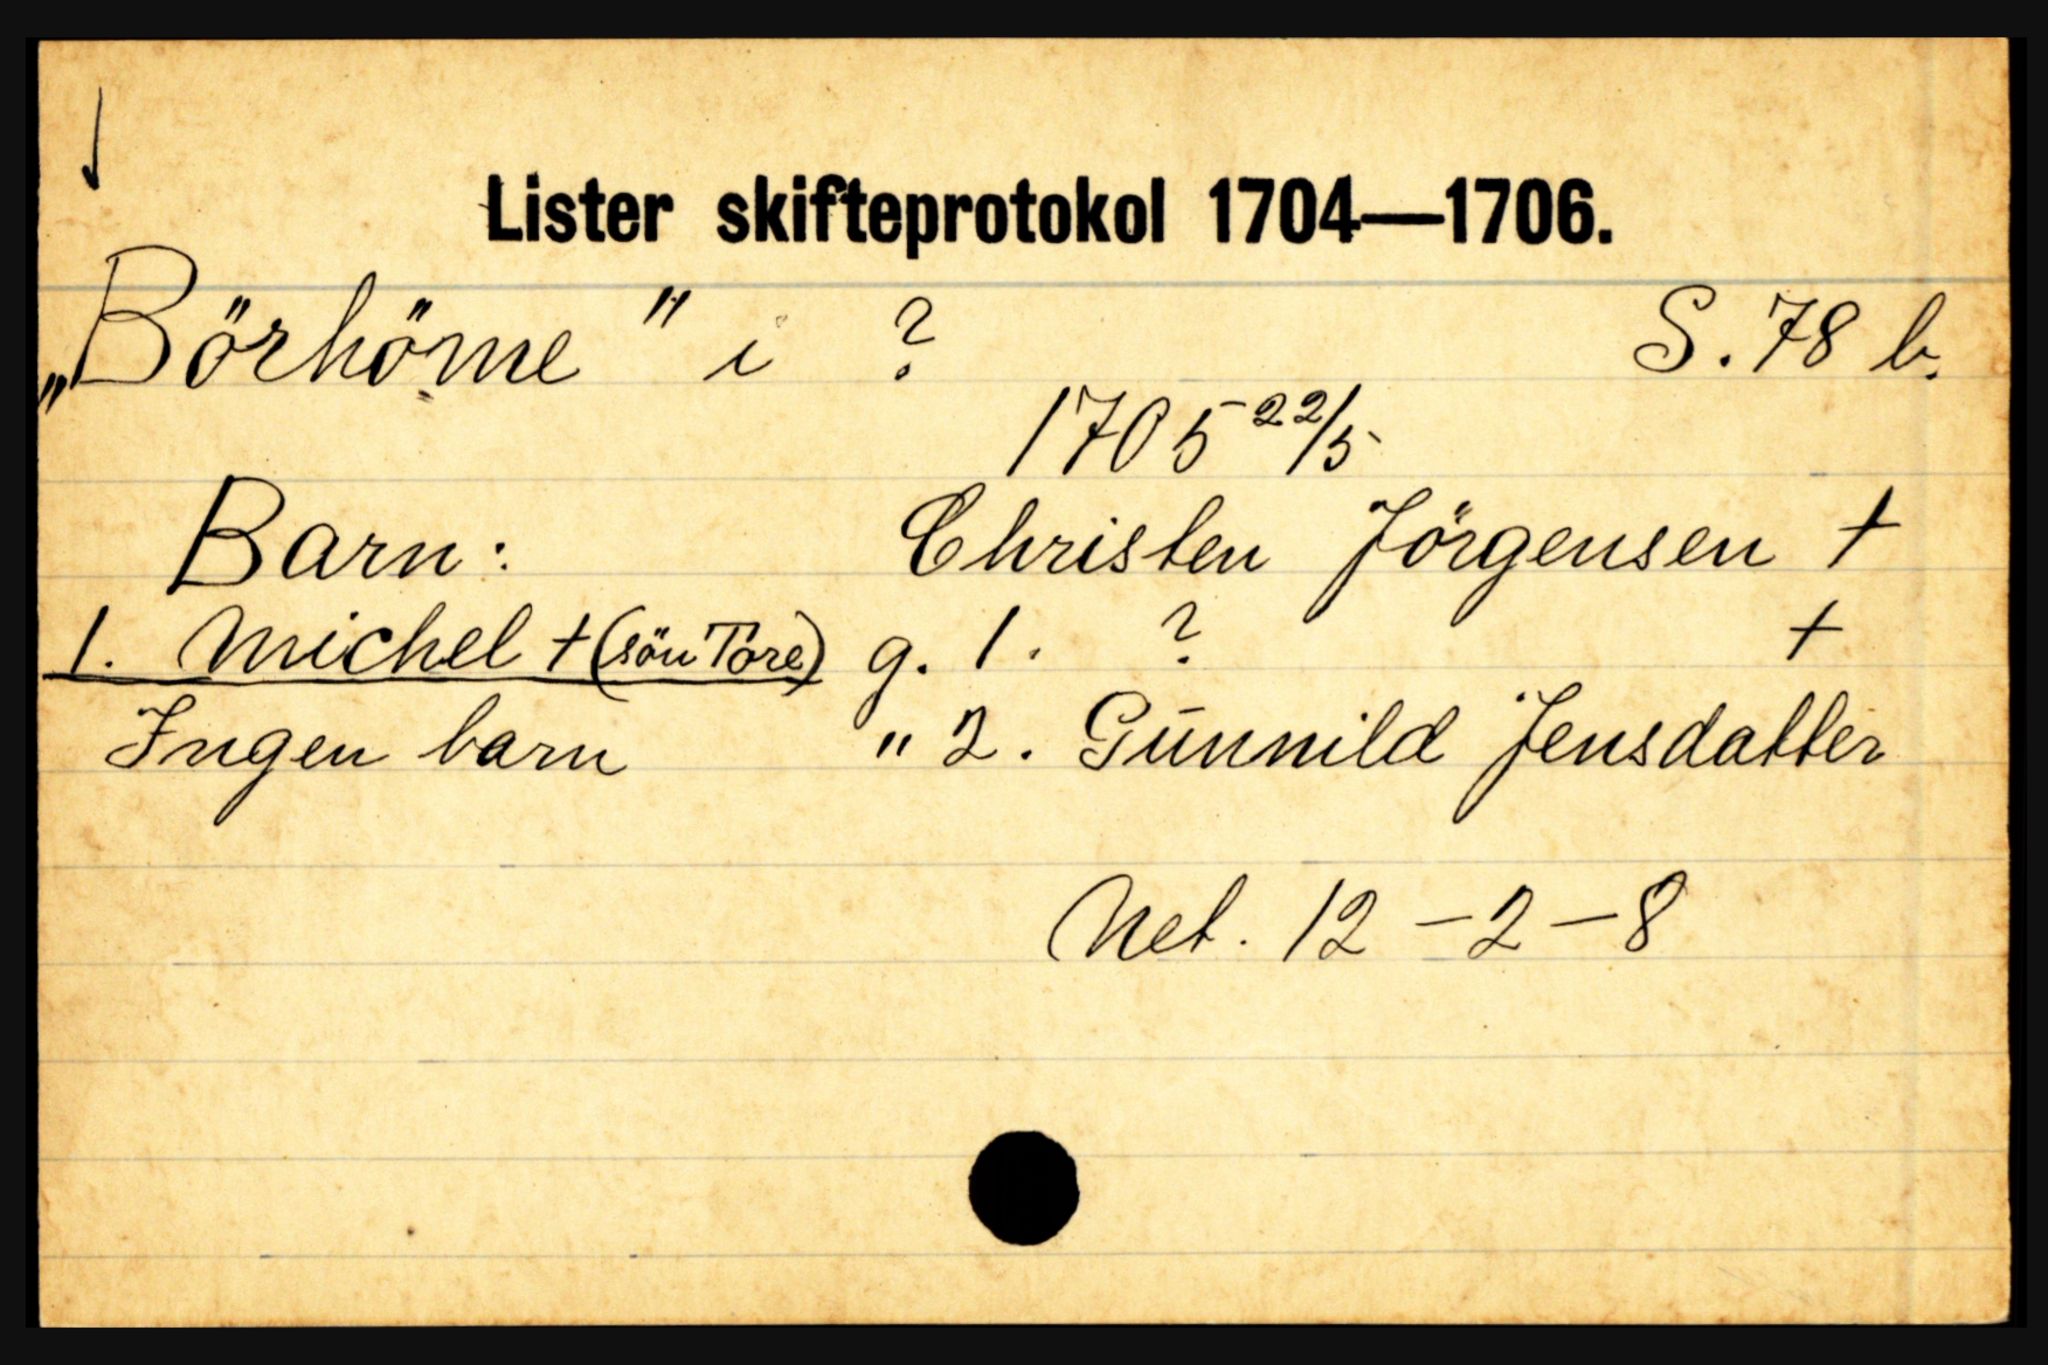 Lister skifteprotokol 1704—1706.
„Börhöme" i ? S. 78 b.
1705 22/5
Barn: Christen Jörgensen †
1. Michel † (sön Tore) g. 1. ? †
Ingen barn " 2. Gunnild Jensdatter
Net. 12 – 2 – 8